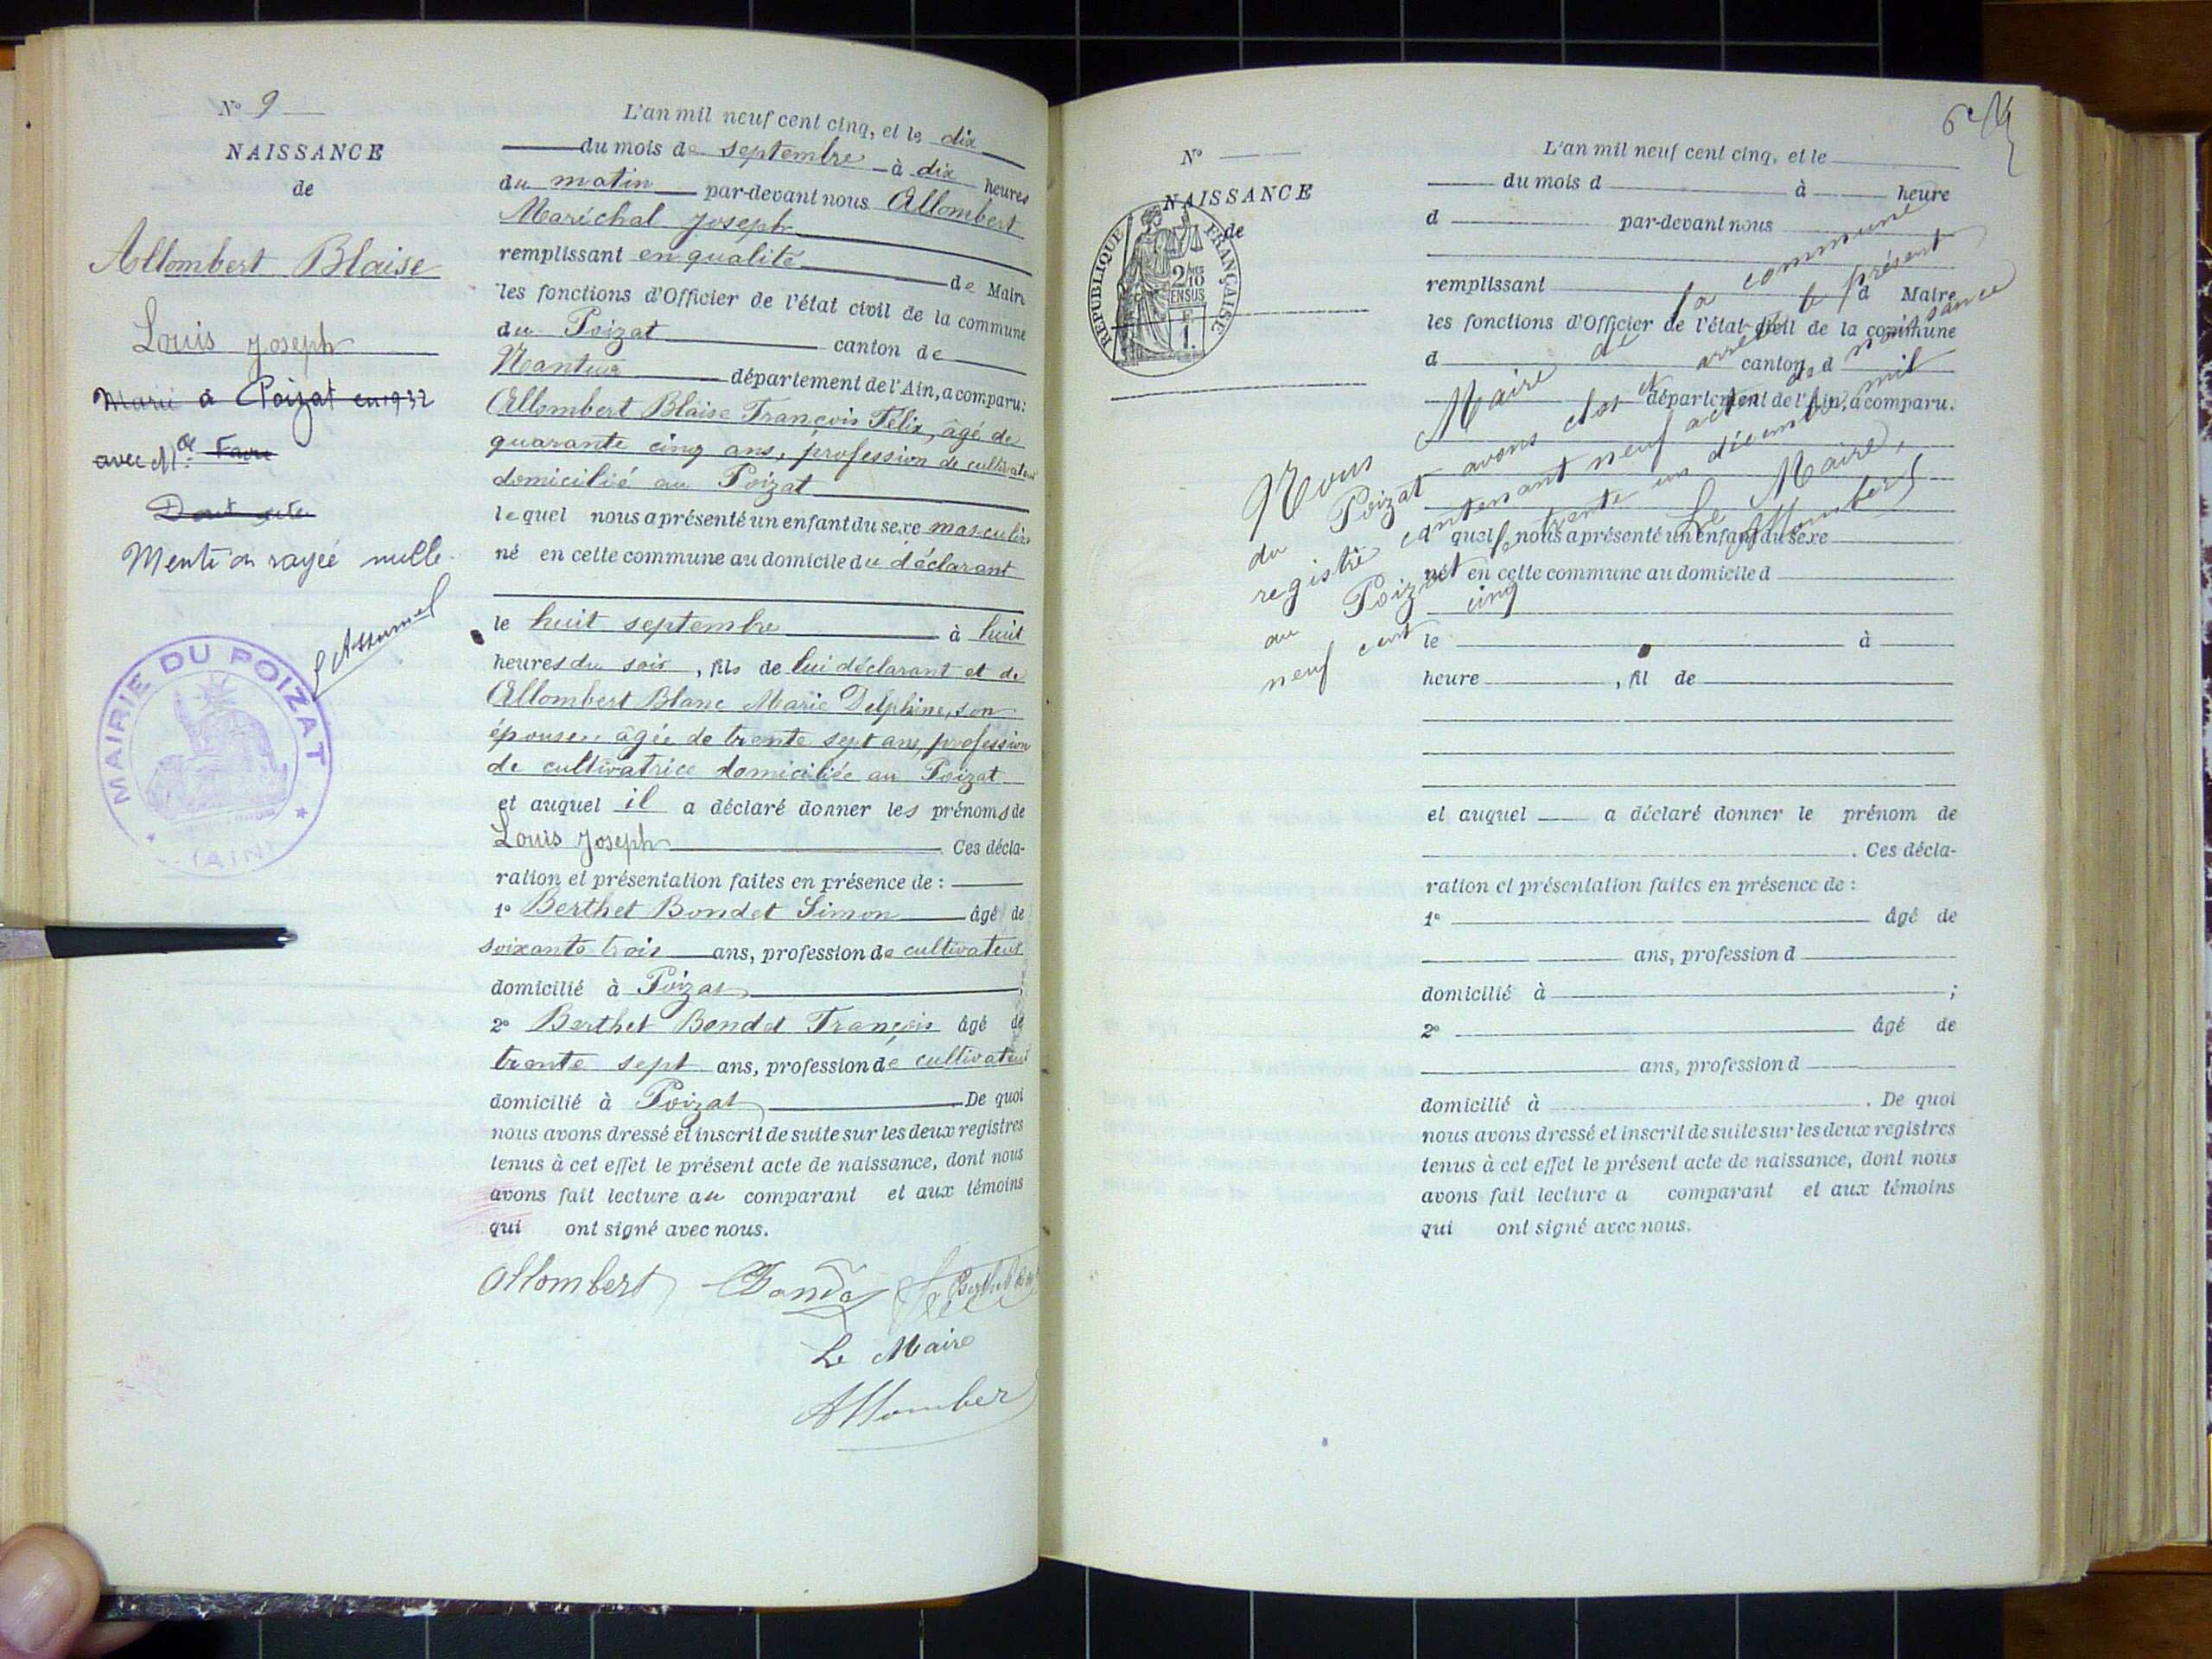 N° 9
NAISSANCE
de
Allombert Blaise
Louis Joseph
Marié à Poizat en 1932
avec Mde Favre
Dont acte
Mention rayée nulle
MAIRIE DU POIZAT
(AIN)
L'an mil neuf cent cinq, et le dix
du mois de septembre à dix heures
du matin par-devant nous Allombert
Maréchal Joseph
remplissant en qualité de Maire
les fonctions d'Officier de l'état civil de la commune
du Poizat canton de
Nantua département de l'Ain, a comparu:
Allombert Blaise François Félix, âgé de
quarante cinq ans, profession de cultivateur
domicilié au Poizat
lequel nous a présenté un enfant du sexe masculin
né en cette commune au domicile du déclarant
le huit septembre à huit
heures du soir, fils de lui déclarant et de
Allombert Blanc Marie Delphine, son
épouse, âgée de trente sept ans, profession
de cultivatrice domiciliée au Poizat
et auquel il a déclaré donner les prénoms de
Louis Joseph Ces décla-
ration et présentation faites en présence de :
1° Berthet Bondet Simon âgé de
soixante trois ans, profession de cultivateur
domicilié à Poizat ;
2° Berthet Bondet François âgé de
trente sept ans, profession de cultivateur
domicilié à Poizat De quoi
nous avons dressé et inscrit de suite sur les deux registres
tenus à cet effet le présent acte de naissance, dont nous
avons fait lecture au comparant et aux témoins
qui ont signé avec nous.
Allombert
Le Maire
Allombert
N°
NAISSANCE
de
RÉPUBLIQUE FRANÇAISE
2/10 EN SUS
1.
L'an mil neuf cent cinq, et le
du mois d à heure
d par-devant nous
remplissant d Maire
les fonctions d'Officier de l'état civil de la commune
d canton d
département de l'Ain, a comparu.
quel nous a présenté un enfant du sexe
né en cette commune au domicile d
le à
heure , fil de
et auquel a déclaré donner le prénom de
. Ces décla-
ration et présentation faites en présence de :
1° âgé de
ans, profession d
domicilié à ;
2° âgé de
ans, profession d
domicilié à . De quoi
nous avons dressé et inscrit de suite sur les deux registres
tenus à cet effet le présent acte de naissance, dont nous
avons fait lecture a comparant et aux témoins
qui ont signé avec nous.
Nous Maire de la commune
du Poizat avons clos et arrêté le présent
registre contenant neuf actes de naissance
au Poizat le trente un décembre mil
neuf cent cinq
Le Maire,
Allombert